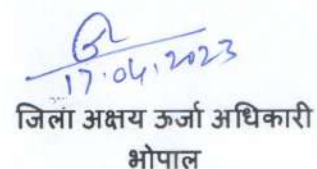 17.04.2023
जिला अक्षय ऊर्जा अधिकारी
भोपाल